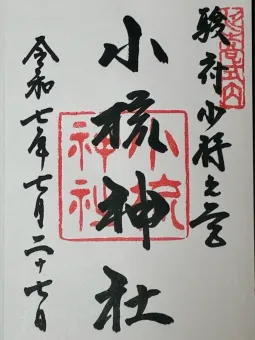 駿府少将之宮
小梳神社
令和七年七月二十七日
小梳神社